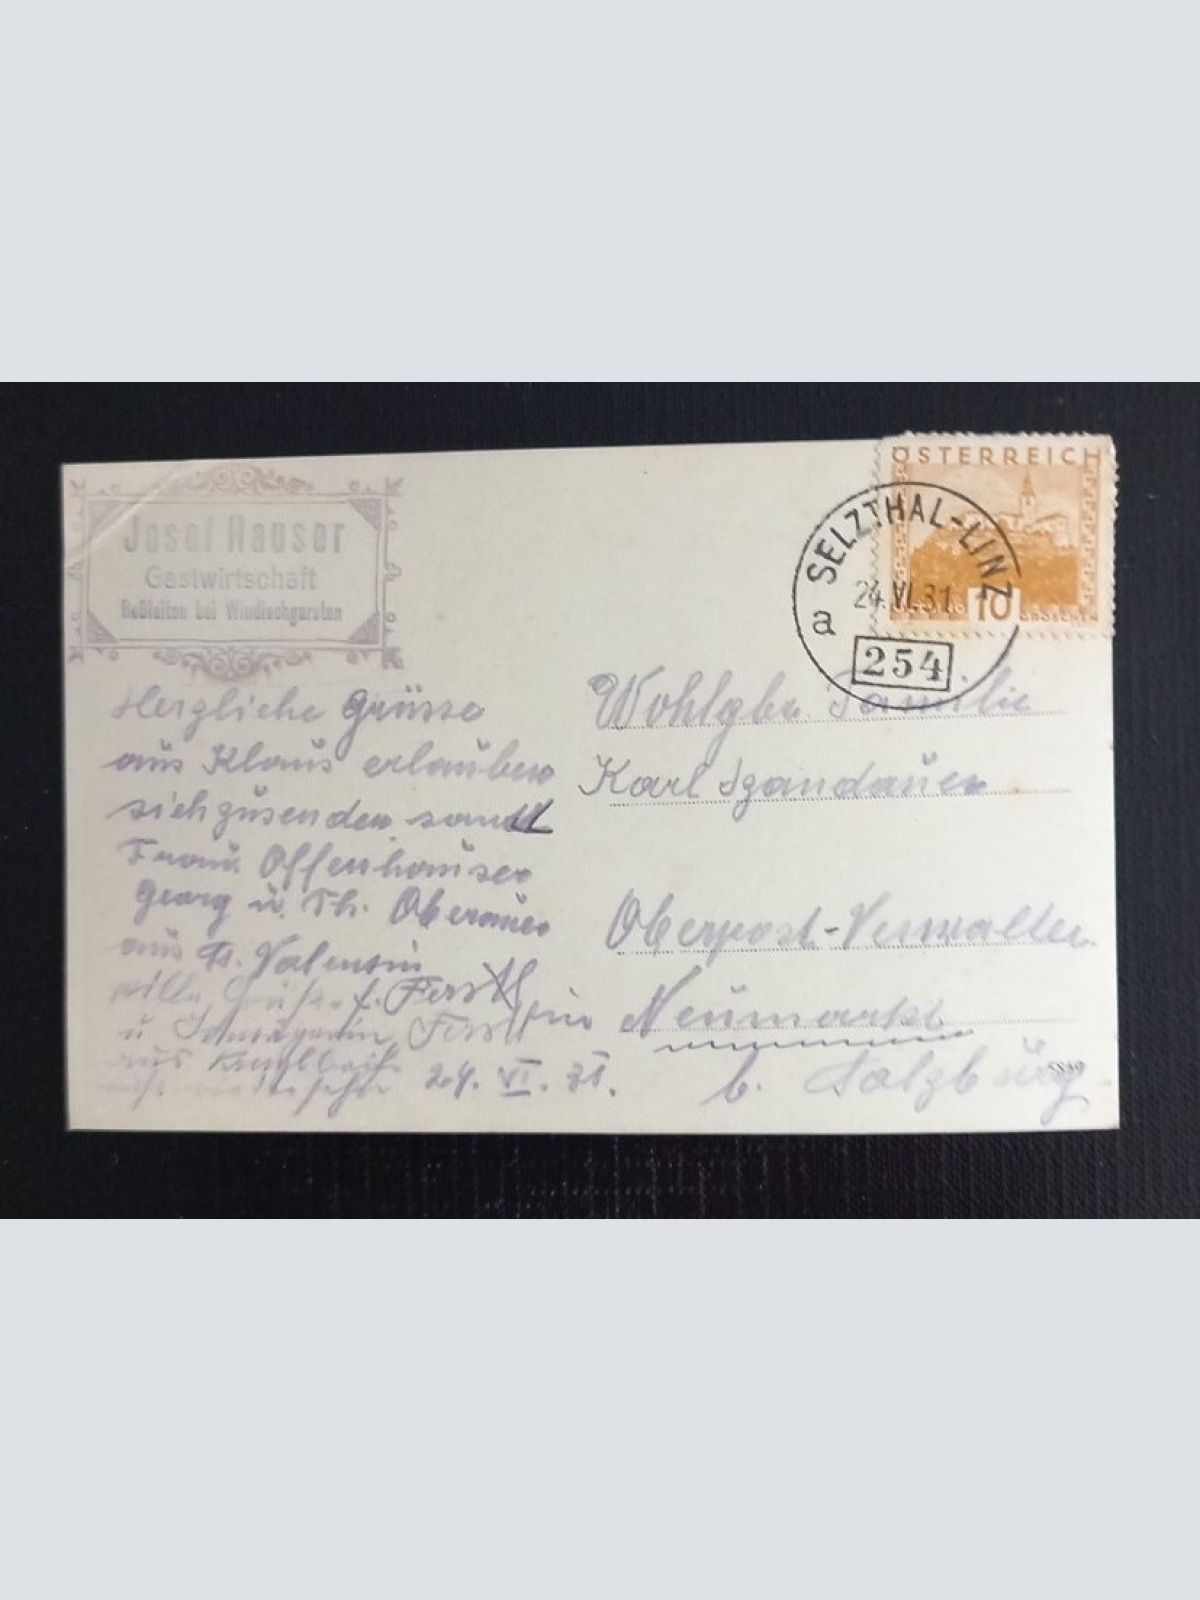 Josef Hauser
Gastwirtschaft
Roßleiten bei Windischgarsten
ÖSTERREICH
SELZTHAL-LINZ
24.VI.31
a
10
GROSCHEN
254
Herzliche Grüsse
aus Klaus erlauben
sich zusenden samt
Frau Offenhauser
Georg u. Th. Oberauer
aus St. Valentin
Ferstl
u Schwägerin Ferstl
aus
24. VI. 31.
Wohlgbr. Familie
Karl Szandauer
Oberpost-Verwalter
in Neumarkt
b. Salzburg
5839